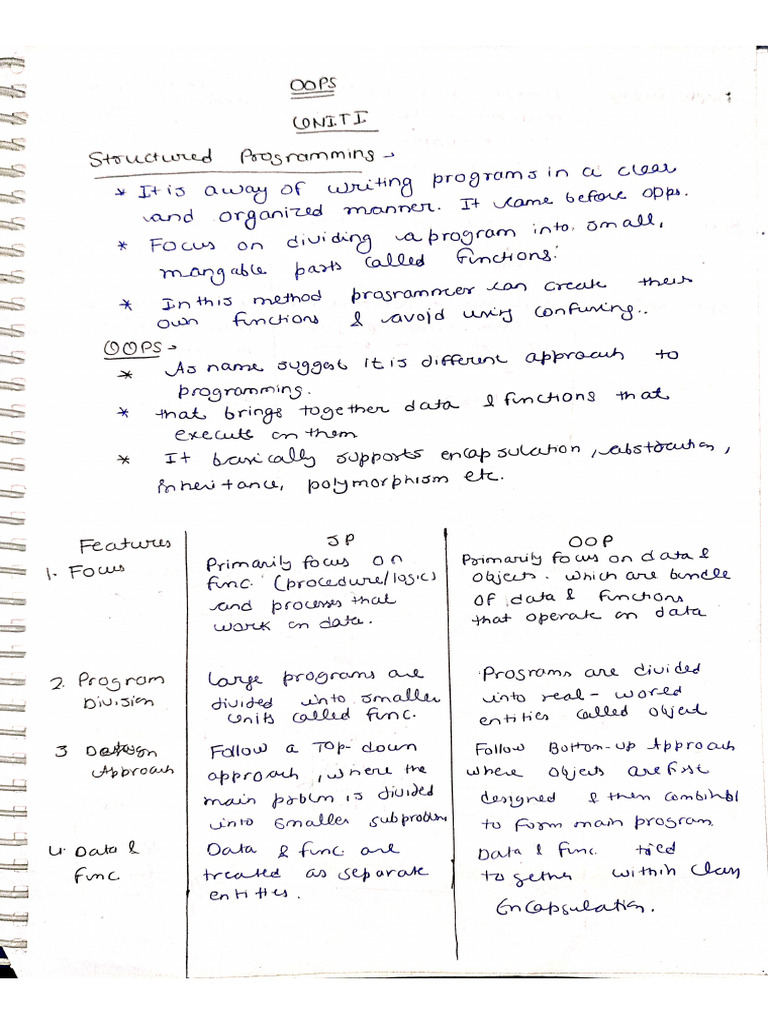 OOPS
UNIT I
Structured Programming →
* It is a way of writing programs in a clear
and organized manner. It came before opps.
* Focus on dividing a program into small,
mangable parts called functions.
* In this method programmer can create their
own functions & avoid using confusing..
OOPS →
* As name suggest it is different approach to
programming.
* that brings together data & functions that
execute on them
* It basically supports encapsulation, abstraction,
inheritance, polymorphism etc.
Features | SP | OOP
1. Focus
Primarily focus on
func. (procedure/logic)
and processes that
work on data.
Primarily focus on data &
objects. which are bundle
of data & functions
that operate on data
2. Program
Division
Large programs are
divided into smaller
units called func.
Programs are divided
into real-world
entities called object
3 Design
Approach
Follow a Top-down
approach, where the
main problm is divided
into smaller subproblem
Follow Bottom-up Approach
where objects are first
designed & then combined
to form main program.
4. Data &
func.
Data & func. are
treated as separate
entities.
Data & Func. tied
together within class
Encapsulation.